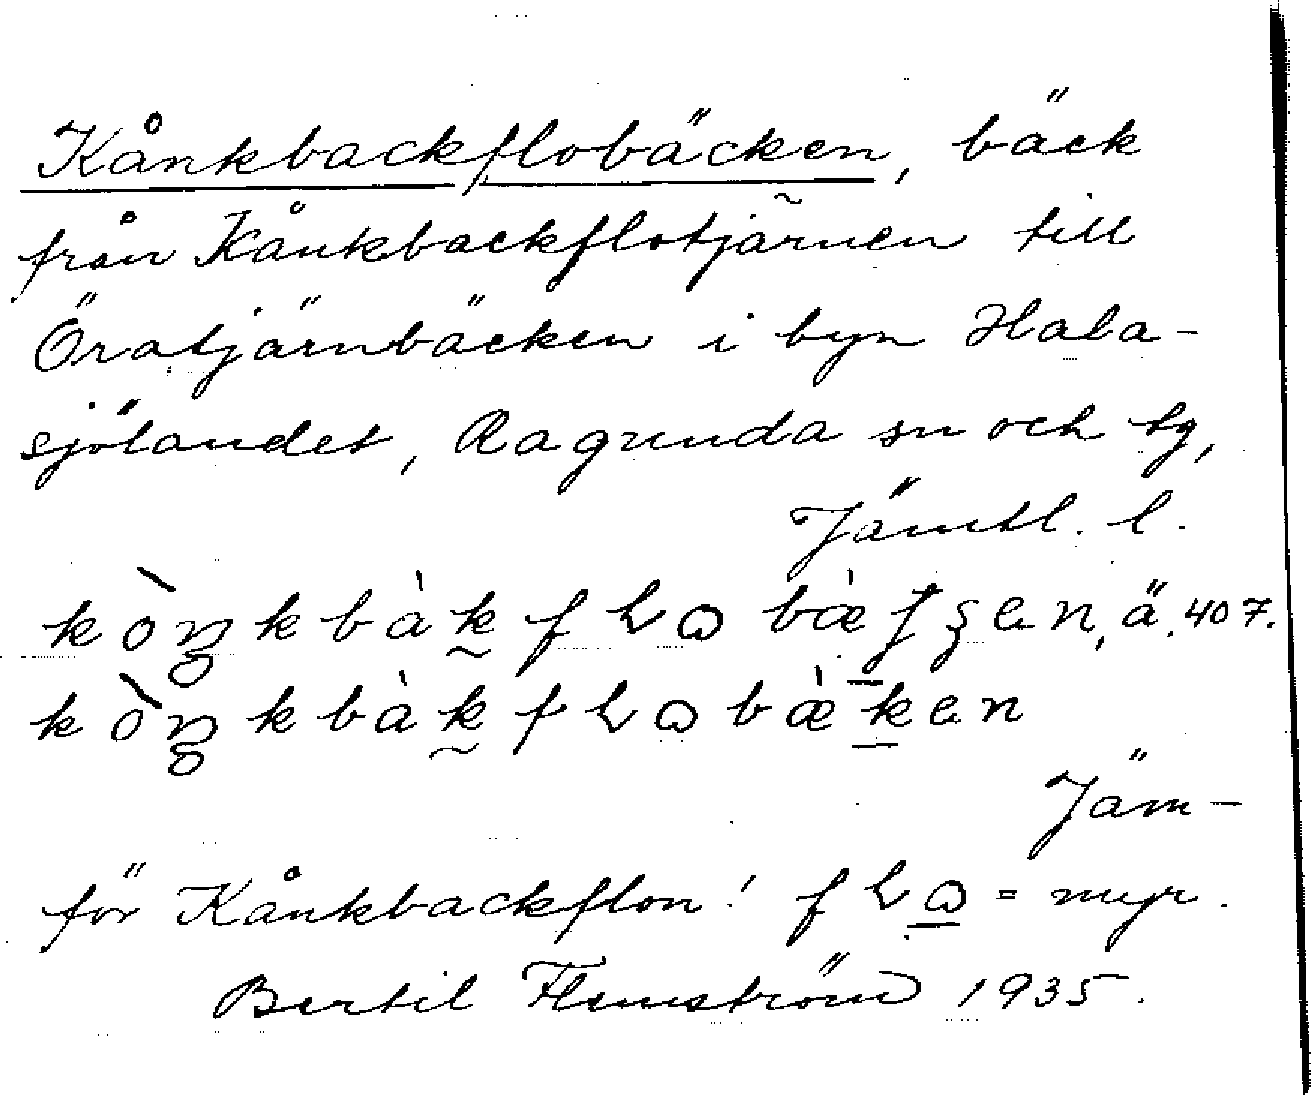 Kånkbackflobäcken, bäck
från Kånkbackflotjärnen till
Öratjärnbäcken i byn Hala-
sjölandet, Ragunda sn och tg,
Jämtl. l.
ä. 407.
Jäm-
för Kånkbackflon! = myr.
Bertil Flemström 1935.